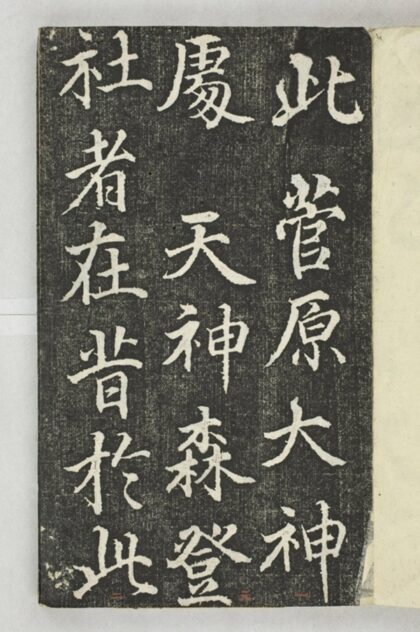 此 菅原大神
處 天神森登
社者在昔於此